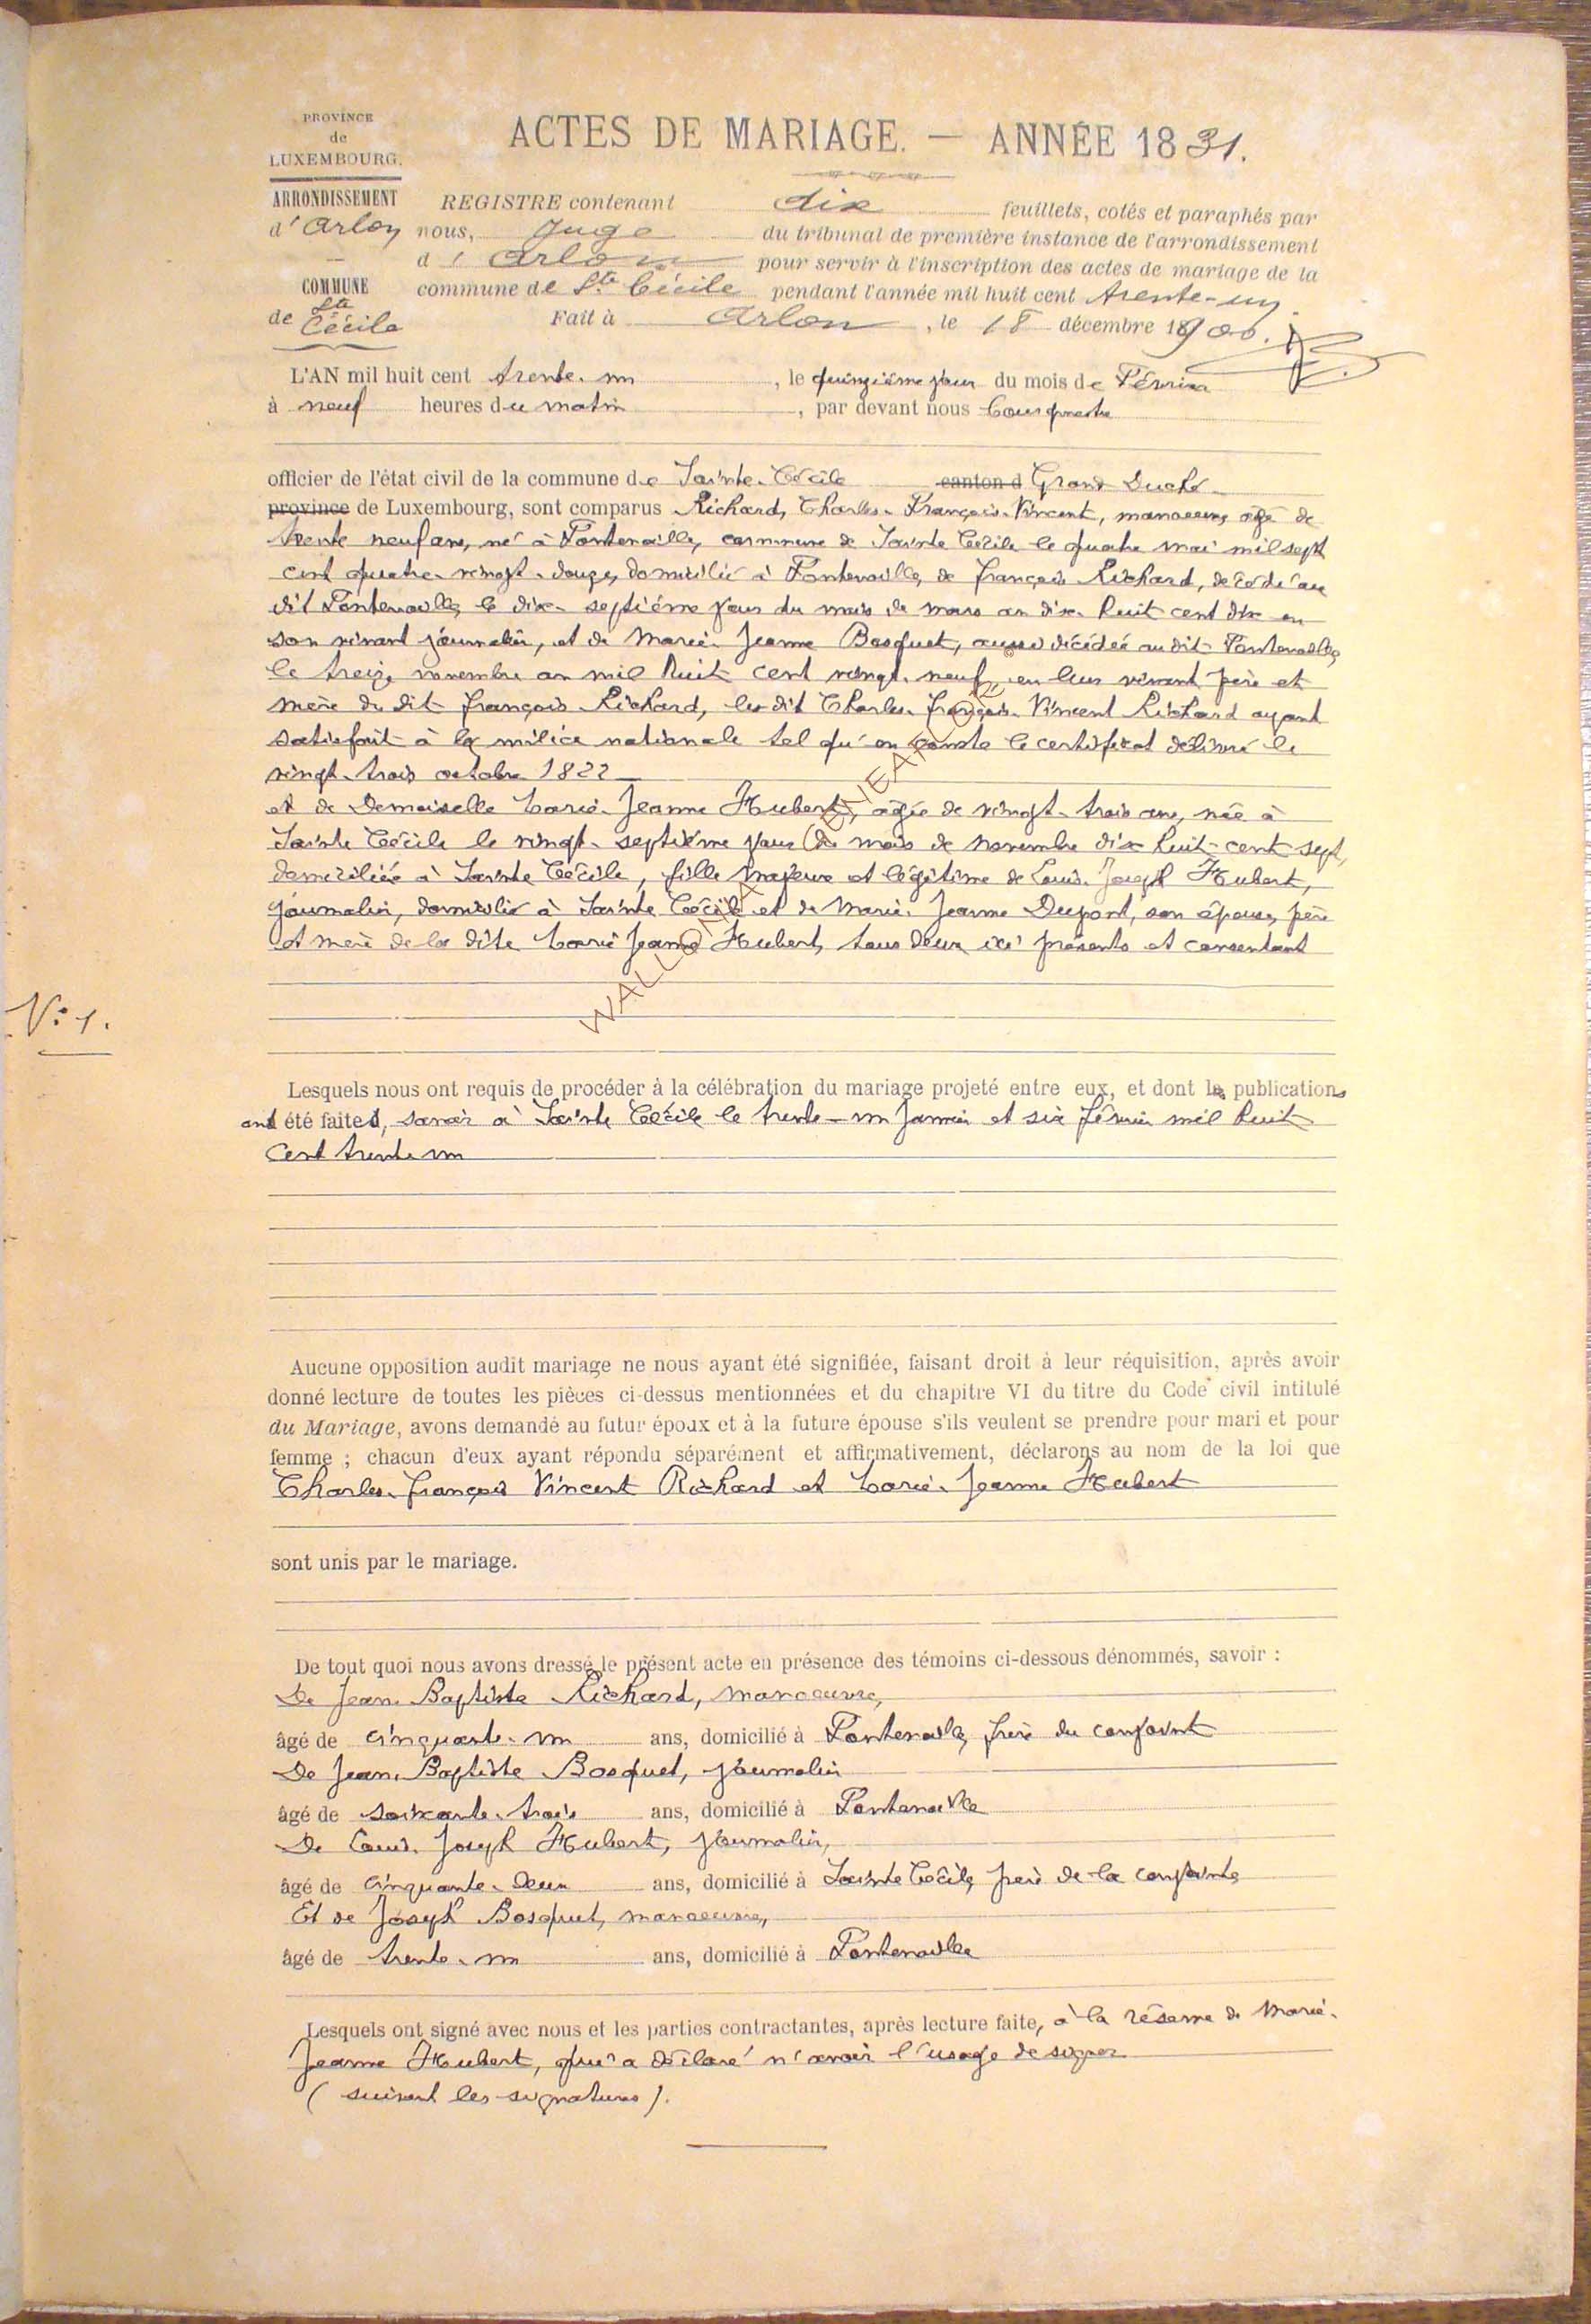 PROVINCE
de
LUXEMBOURG.
ARRONDISSEMENT
d'Arlon
COMMUNE
de Ste Cécile
ACTES DE MARIAGE. — ANNÉE 1831.
REGISTRE contenant dix feuillets, cotés et paraphés par
nous, Juge du tribunal de première instance de l'arrondissement
d'Arlon pour servir à l'inscription des actes de mariage de la
commune de Ste Cécile pendant l'année mil huit cent trente-un.
Fait à Arlon, le 18 décembre 1900.
L'AN mil huit cent trente-un, le quinzième jour du mois de Février
à neuf heures du matin, par devant nous
officier de l'état civil de la commune de Sainte-Cécile canton d Grand Duché
province de Luxembourg, sont comparus Richard, Charles-François-Vincent, manoeuvre, agé de
trente neuf ans, né à Fontenoille, commune de Sainte Cécile le quatre mai mil sept
cent quatre-vingt-douze, domicilié à Fontenoille, de françois Richard, décédé au
dit Fontenoille, le dix-septième jour du mois de mars an dix-huit cent dix en
son vivant journalier, et de Marie-Jeanne Bosquet, aussi décédée au dit Fontenoille,
le treize novembre an mil huit cent vingt-neuf, en leur vivant père et
mère du dit françois Richard, le dit Charles-françois-Vincent Richard ayant
satisfait à la milice nationale tel qu'en conste le certificat délivré le
vingt-trois octobre 1822
et de Demoiselle Marie-Jeanne Hubert, agée de vingt-trois ans, née à
Sainte Cécile le vingt-septième jour du mois de novembre dix huit-cent sept,
domiciliée à Sainte Cécile, fille majeure et légitime de Louis-Joseph Hubert,
journalier, domicilié à Sainte Cécile et de Marie-Jeanne Dupont, son épouse, père
et mère de la dite Marie Jeanne Hubert, tous deux ici présents et consentant
N° 1.
Lesquels nous ont requis de procéder à la célébration du mariage projeté entre eux, et dont les publications
ont été faites, savoir à Sainte Cécile le trente-un Janvier et six février mil huit
cent trente un
Aucune opposition audit mariage ne nous ayant été signifiée, faisant droit à leur réquisition, après avoir
donné lecture de toutes les pièces ci-dessus mentionnées et du chapitre VI du titre du Code civil intitulé
du Mariage, avons demandé au futur époux et à la future épouse s'ils veulent se prendre pour mari et pour
femme ; chacun d'eux ayant répondu séparément et affirmativement, déclarons au nom de la loi que
Charles-françois Vincent Richard et Marie-Jeanne Hubert
sont unis par le mariage.
De tout quoi nous avons dressé le présent acte en présence des témoins ci-dessous dénommés, savoir :
De Jean-Baptiste Richard, manoeuvre,
âgé de cinquante-un ans, domicilié à Fontenoille, frère du conjoint
De Jean-Baptiste Bosquet, journalier
âgé de soixante-trois ans, domicilié à Fontenoille
De Louis-Joseph Hubert, journalier,
âgé de cinquante-deux ans, domicilié à Sainte Cécile, père de la conjointe
Et de Joseph Bosquet, manoeuvre,
âgé de trente-un ans, domicilié à Fontenoille
Lesquels ont signé avec nous et les parties contractantes, après lecture faite, à la réserve de Marie-
Jeanne Hubert, qui a déclaré n'avoir l'usage de signer
( suivent les signatures ).